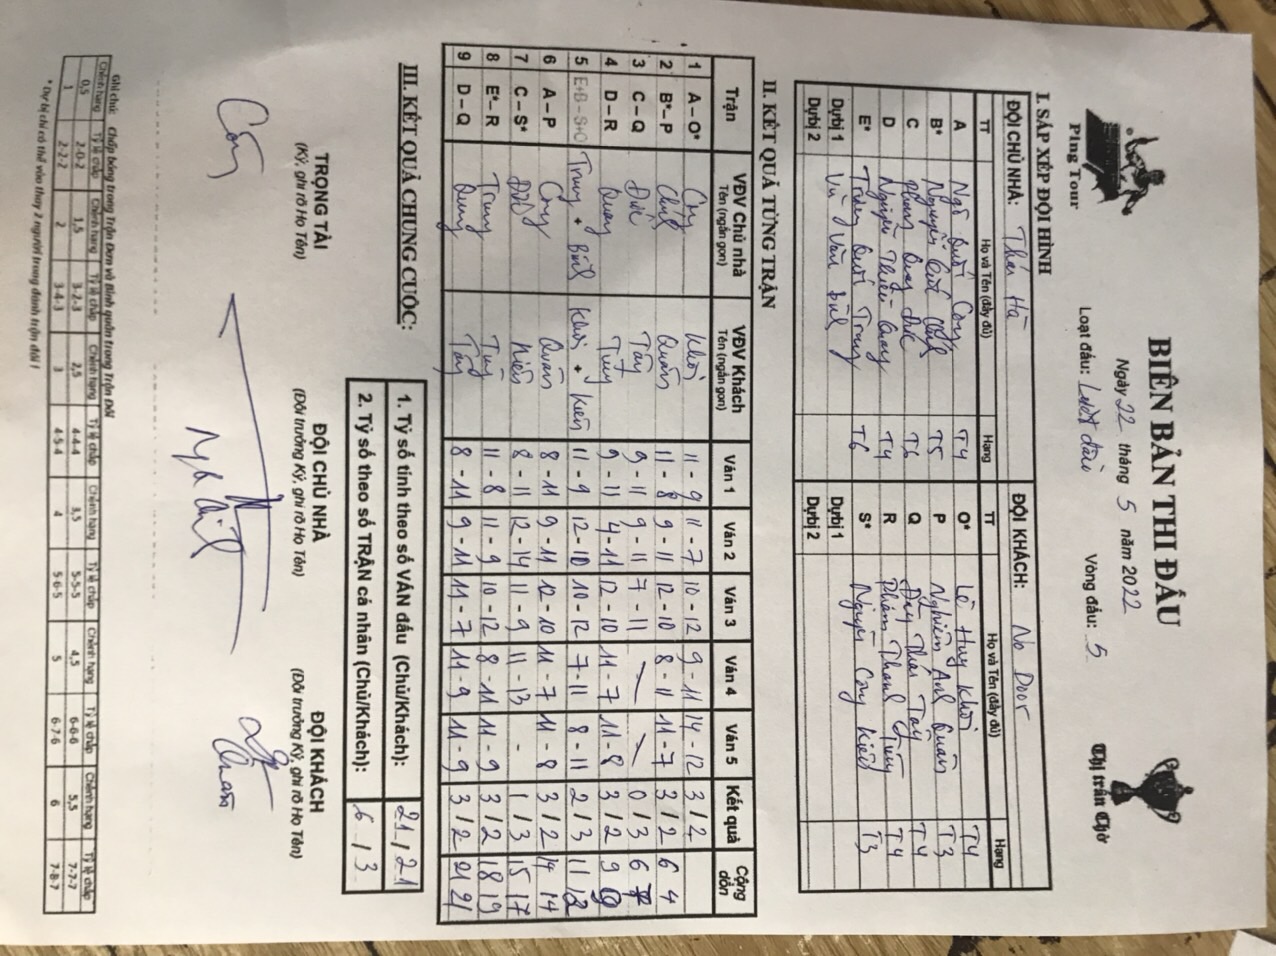 Ping Tour
BIÊN BẢN THI ĐẤU
Ngày 22 tháng 5 năm 2022
Loạt đấu: Lượt đầu Vòng đấu: 5
Thị trấn Chờ
I. SẮP XẾP ĐỘI HÌNH
ĐỘI CHỦ NHÀ: Thái Hà ĐỘI KHÁCH: No Door
TT Họ và Tên (đầy đủ) Hạng TT Họ và Tên (đầy đủ) Hạng
A Ngô Quốc Công T4 O* Lê Huy Khôi T4
B* Nguyễn T5 P Nghiêm Anh Quân T3
C Phạm Quang Đức T6 Q Thái Tây T4
D Nguyễn Thiều Quang T4 R Phạm Thanh Tùng T4
E* Trần Quốc Trung T6 S* Nguyễn Công Kiên T3
Dự bị 1 Vũ Văn Bình Dự bị 1
Dự bị 2 Dự bị 2
II. KẾT QUẢ TỪNG TRẬN
Trận VĐV Chủ nhà Tên (ngắn gọn) VĐV Khách Tên (ngắn gọn) Ván 1 Ván 2 Ván 3 Ván 4 Ván 5 Kết quả Cộng dồn
1 A – O* Công Khôi 11 - 9 11 - 7 10 - 12 9 - 11 14 - 12 3 / 2
2 B* – P Quân 11 - 8 9 - 11 12 - 10 8 - 11 11 - 7 3 / 2 6 4
3 C – Q Đức Tây 9 - 11 9 - 11 7 - 11 0 / 3 6 7
4 D – R Quang Tùng 9 - 11 4 - 11 12 - 10 11 - 7 11 - 8 3 / 2 9 9
5 E+B – S+O Trung + Bình Khôi + Kiên 11 - 9 12 - 10 10 - 12 7 - 11 8 - 11 2 / 3 11 12
6 A – P Công Quân 8 - 11 9 - 11 12 - 10 11 - 7 11 - 8 3 / 2 14 14
7 C – S* Đức Kiên 8 - 11 12 - 14 11 - 9 11 - 13 - 1 / 3 15 17
8 E* – R Trung Tùng 11 - 8 11 - 9 10 - 12 8 - 11 11 - 9 3 / 2 18 19
9 D – Q Quang Tây 8 - 11 9 - 11 11 - 7 11 - 9 11 - 9 3 / 2 21 21
III. KẾT QUẢ CHUNG CUỘC:
1. Tỷ số tính theo số VÁN đấu (Chủ/Khách): 21 / 21
2. Tỷ số theo số TRẬN cá nhân (Chủ/Khách): 6 / 3
TRỌNG TÀI ĐỘI CHỦ NHÀ ĐỘI KHÁCH
(Ký, ghi rõ Họ Tên) (Đội trưởng Ký, ghi rõ Họ Tên) (Đội trưởng Ký, ghi rõ Họ Tên)
Công
Ghi chú: Chấp bóng trong Trận Đơn và Bình quân trong Trận Đôi
Chênh hạng Tỷ lệ chấp Chênh hạng Tỷ lệ chấp Chênh hạng Tỷ lệ chấp Chênh hạng Tỷ lệ chấp Chênh hạng Tỷ lệ chấp Chênh hạng Tỷ lệ chấp
0,5 2-0-2 1,5 3-2-3 2,5 4-4-4 3,5 5-5-5 4,5 6-6-6 5,5 7-7-7
1 2-2-2 2 3-4-3 3 4-5-4 4 5-6-5 5 6-7-6 6 7-8-7
* Dự bị chỉ có thể vào thay 2 người trong đánh trận đôi !